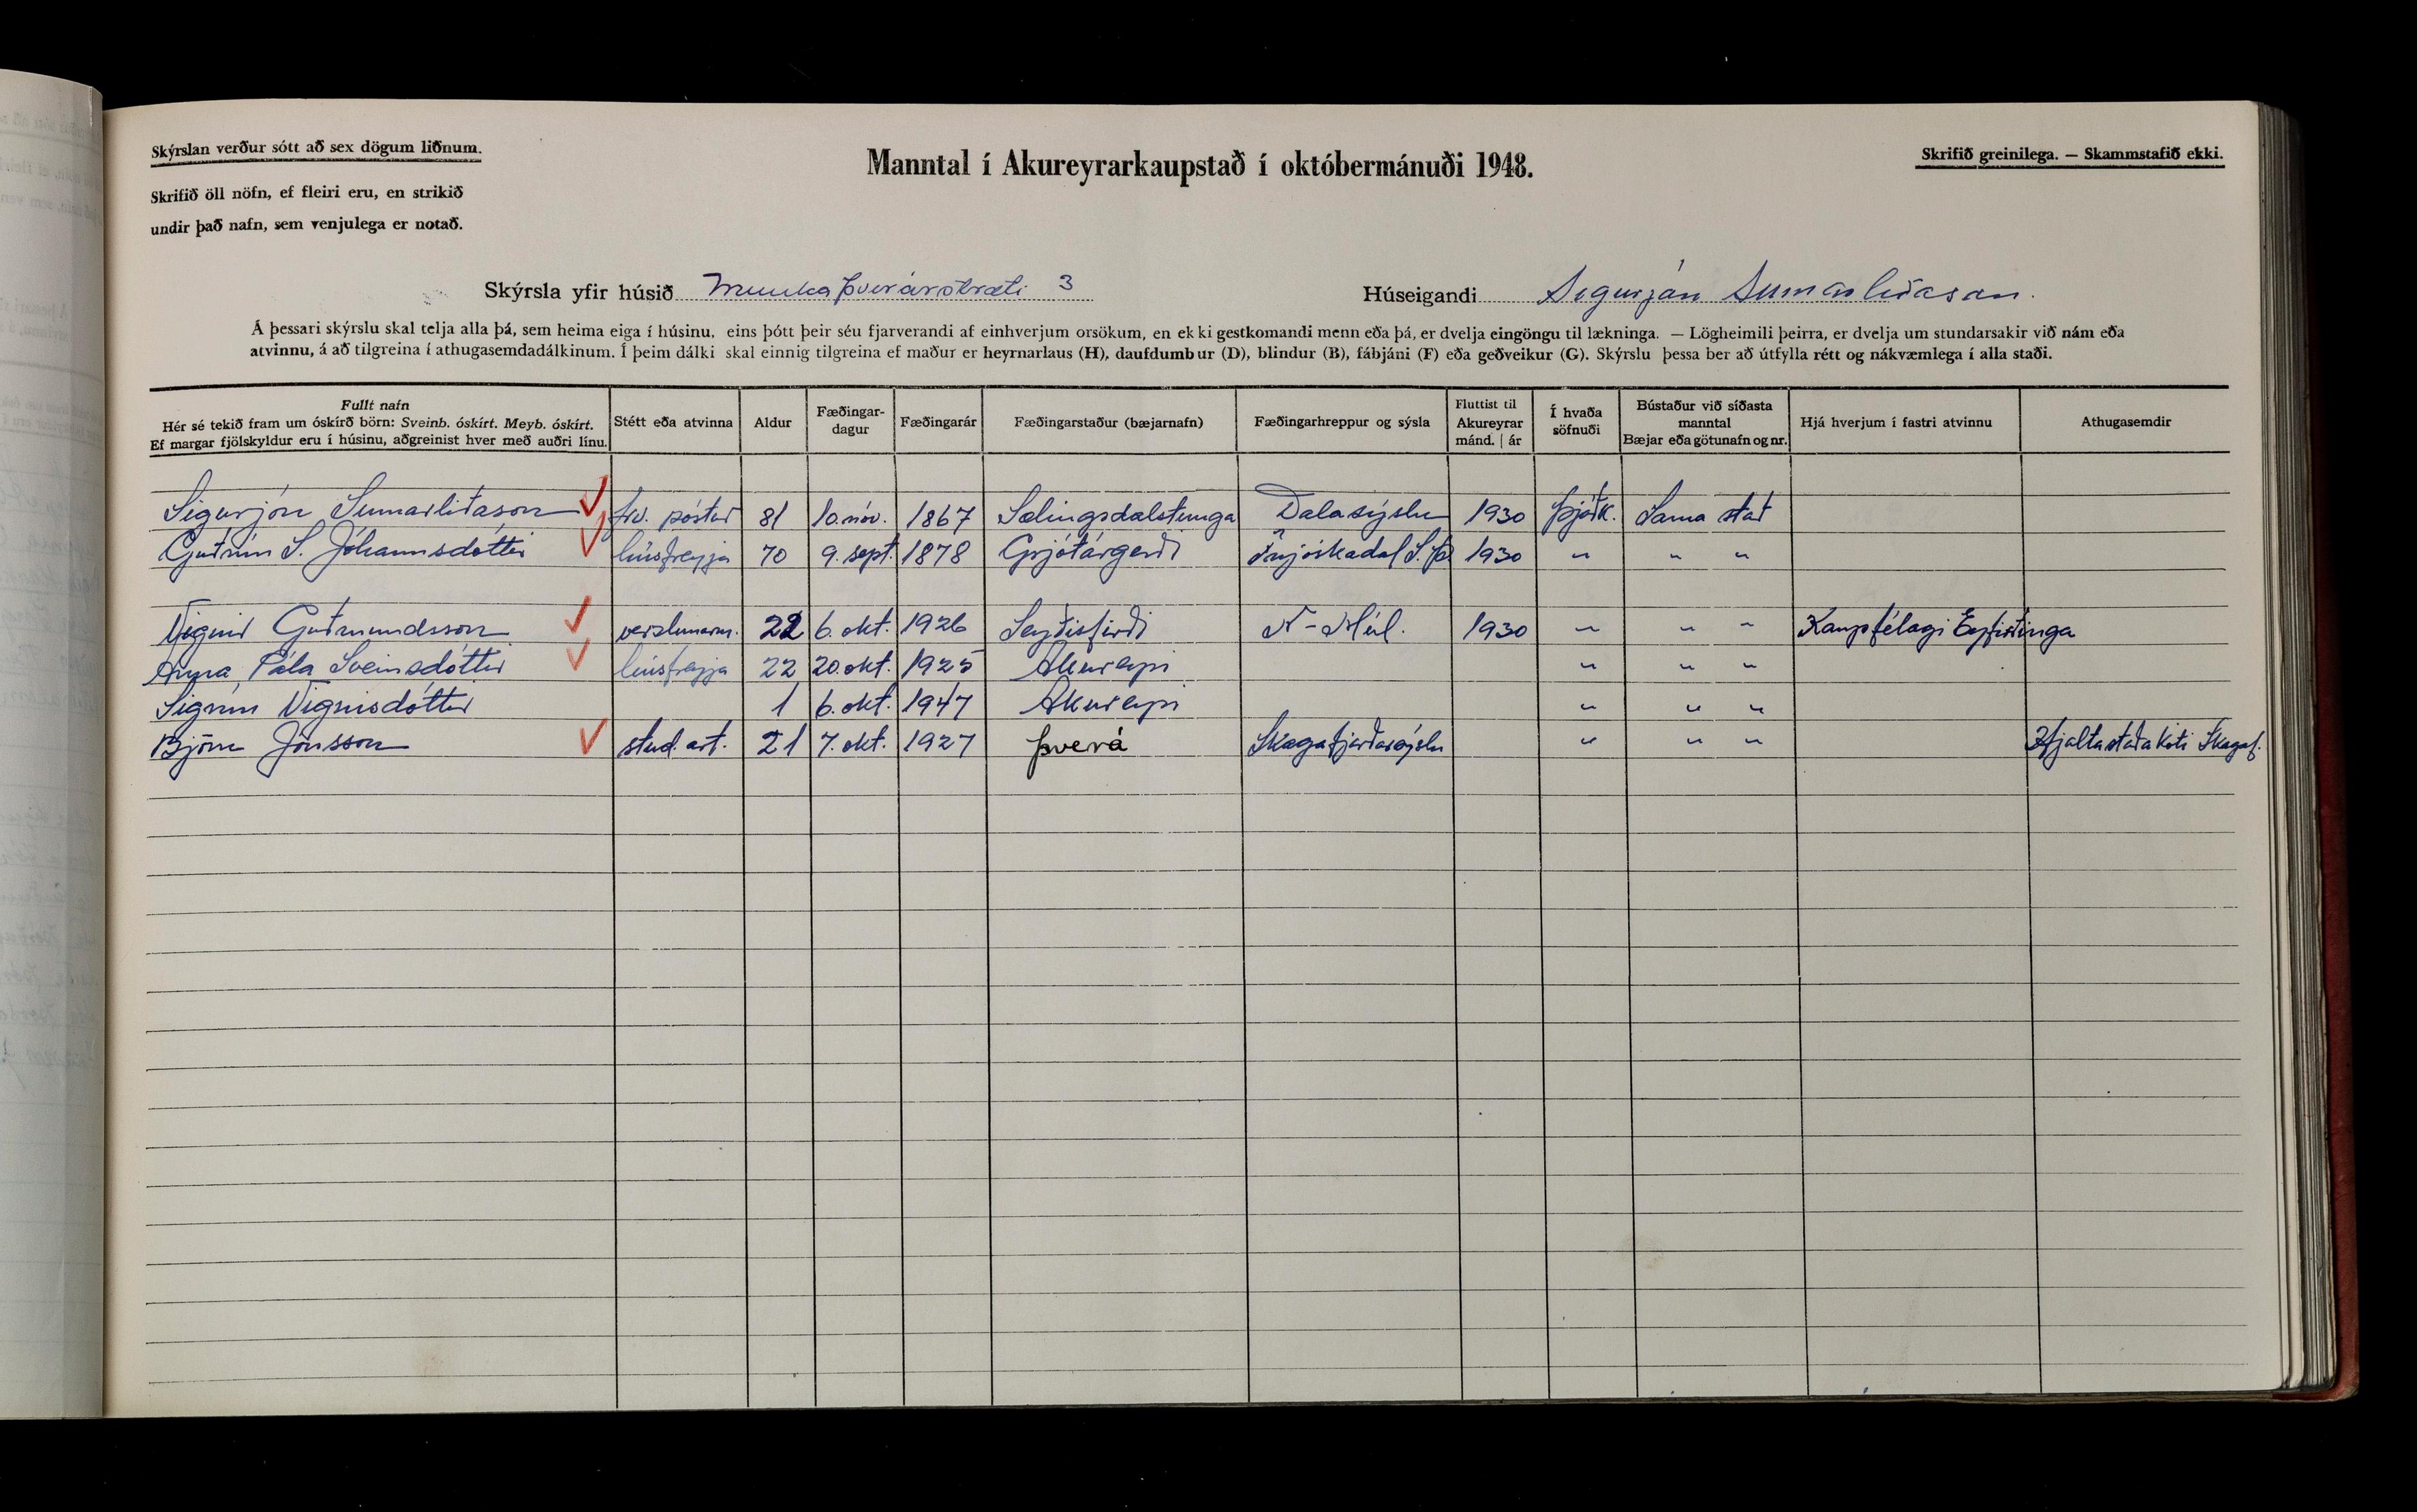 Skýrslan verður sótt að sex dögum liðnum.
Skrifið öll nöfn, ef fleiri eru, en strikið
undir það nafn, sem venjulega er notað.
Manntal í Akureyrarkaupstað í októbermánuði 1948.
Skrifið greinilega. — Skammstafið ekki.
Skýrsla yfir húsið Munkaþverárstræti 3
Húseigandi Sigurjón Sumarliðason.
Á þessari skýrslu skal telja alla þá, sem heima eiga í húsinu, eins þótt þeir séu fjarverandi af einhverjum orsökum, en ekki gestkomandi menn eða þá, er dvelja eingöngu til lækninga. — Lögheimili þeirra, er dvelja um stundarsakir við nám eða
atvinnu, á að tilgreina í athugasemdadálkinum. Í þeim dálki skal einnig tilgreina ef maður er heyrnarlaus (H), daufdumbur (D), blindur (B), fábjáni (F) eða geðveikur (G). Skýrslu þessa ber að útfylla rétt og nákvæmlega í alla staði.
Fullt nafn
Hér sé tekið fram um óskírð börn: Sveinb. óskírt. Meyb. óskírt.
Ef margar fjölskyldur eru í húsinu, aðgreinist hver með auðri línu.
Stétt eða atvinna
Aldur
Fæðingar-
dagur
Fæðingarár
Fæðingarstaður (bæjarnafn)
Fæðingarhreppur og sýsla
Fluttist til
Akureyrar
mánd. | ár
Í hvaða
söfnuði
Bústaður við síðasta
manntal
Bæjar eða götunafn og nr.
Hjá hverjum í fastri atvinnu
Athugasemdir
Sigurjón Sumarliðason frv. póstur 81 10. nóv. 1867 Sælingsdalstunga Dalasýslu 1930 Þjóðk. Sama stað
Guðrún S. Jóhannsdóttir húsfreyja 70 9. sept. 1878 Grjótárgerði Fnjóskadal S.Þ. 1930 " " "
Vignir Guðmundsson verzlunarm. 22 6. okt. 1926 Seyðisfirði N-Múl. 1930 " " " Kaupfélagi Eyfirðinga
Anna Pála Sveinsdóttir húsfreyja 22 20. okt. 1925 Akureyri " " "
Sigrún Vignisdóttir 1 6. okt. 1947 Akureyri " " "
Björn Jónsson stud. art. 21 7. okt. 1927 Þverá Skagafjarðarsýslu " " " Hjaltastaðakoti Skagaf.